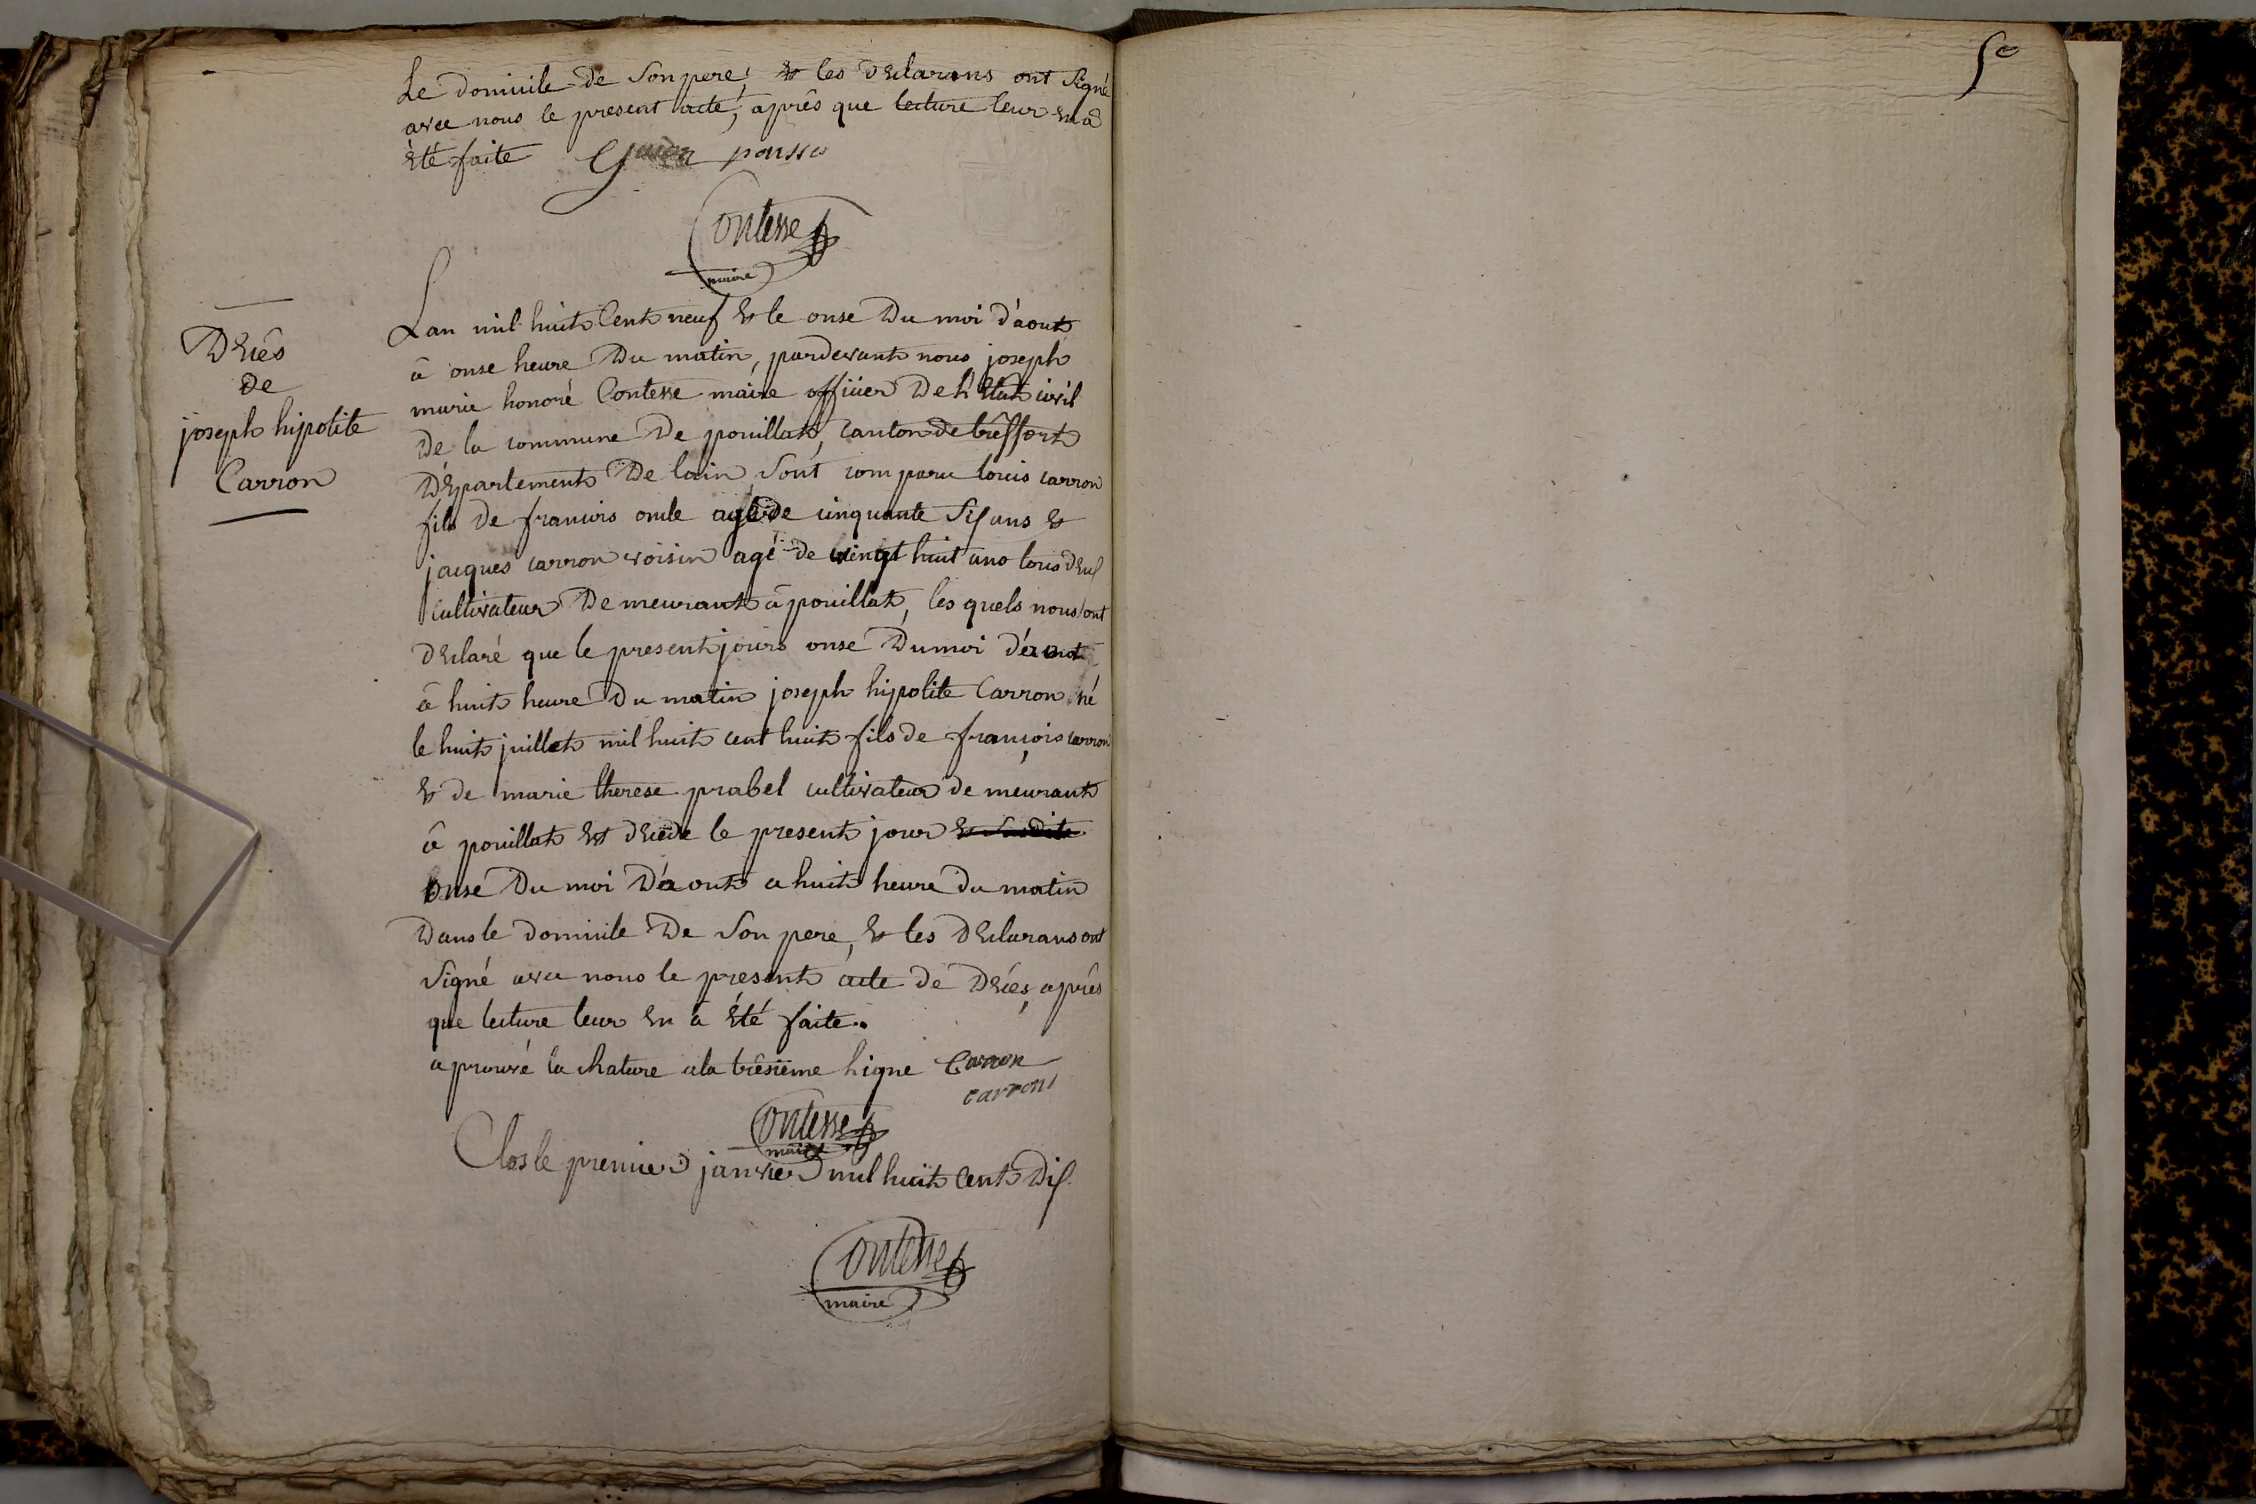 Le domicile de Son pere, et les declarans ont Signé
avec nous le present acte, après que lecture leur en a
été faite Guion pousse
Contesse
maire
Decès
de
joseph hipolite
Carron
Lan mil huit Cent neuf et le onse Du moi d'aout
a onse heure Du matin, pardevant nous joseph
marie honoré Contesse maire officier De L'Etat civil
de la commune De pouillat, canton de treffort
Département De lain, Sont comparu louis carron
fils de francois oncle agé de cinquante Six ans et
jacques carron voisin agé de vingt huit ans tous deux
Cultivateur De meurant a pouillat, les quels nous ont
declaré que le present jours onse Du moi d'aout
a huit heure Du matin joseph hipolite Carron né
le huit juillet mil huit cent huit fils de françois carron
et de marie therese prabel cultivateur de meurant
a pouillat est decede le present jour et susdite
onse Du moi D'aout a huit heure du matin
Dans le domicile De Son pere, et les Declarans ont
Signé avec nous le present acte de Décès, après
que lecture leur en a été faite.
aprouvé la Rature a la tresieme ligne Carron
carron
Contesse
maire
Clos le premier janvier mil huit Cent Dix
Contesse
maire